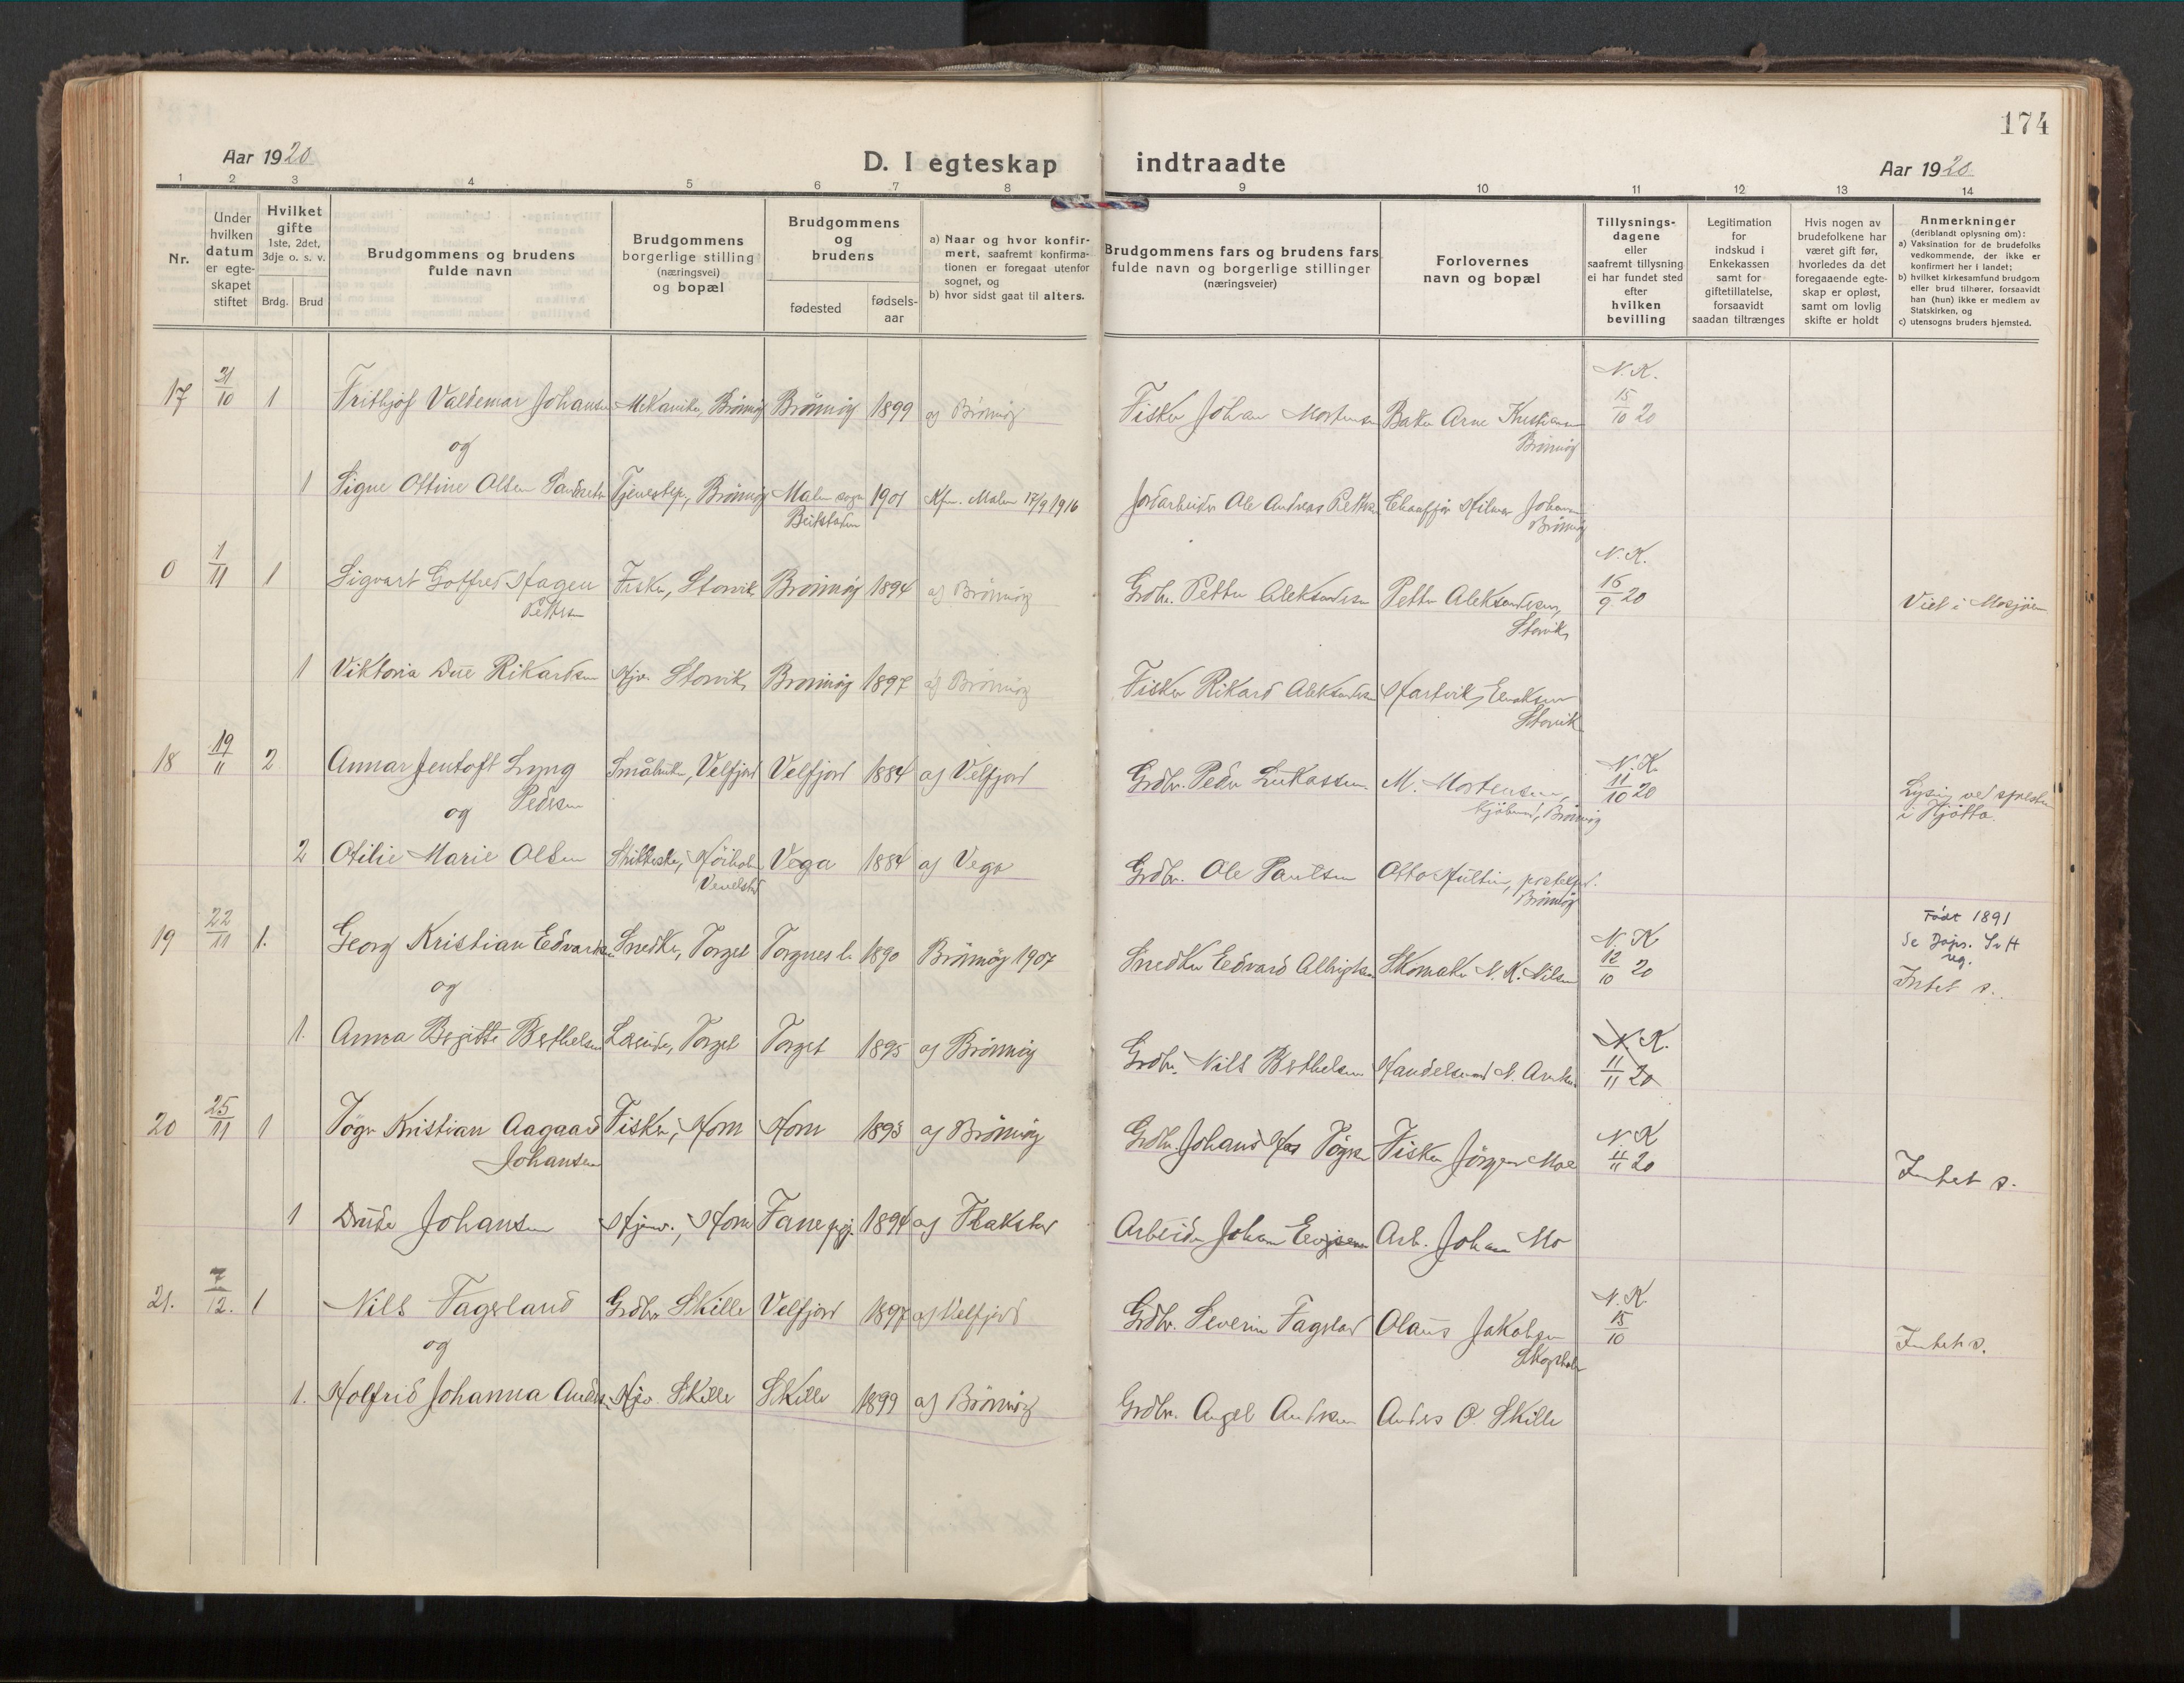 174
Aar 1920
D. I egteskap indtraadte
Aar 1920
1 2 3 4 5 6 7 8 9 10 11 12 13 14
Nr.
Under hvilken datum er egteskapet stiftet
Hvilket gifte 1ste, 2det, 3dje o. s. v.
Brdg. Brud
Brudgommens og brudens fulde navn
Brudgommens borgerlige stilling (næringsvei) og bopæl
Brudgommens og brudens
fødested
fødselsaar
a) Naar og hvor konfirmert, saafremt konfirmationen er foregaat utenfor sognet, og
b) hvor sidst gaat til alters.
Brudgommens fars og brudens fars fulde navn og borgerlige stillinger (næringsveier)
Forlovernes navn og bopæl
Tillysningsdagene eller saafremt tillysning ei har fundet sted efter hvilken bevilling
Legitimation for indskud i Enkekassen samt for giftetillatelse, forsaavidt saadan tiltrænges
Hvis nogen av brudefolkene har været gift før, hvorledes da det foregaaende egteskap er opløst, samt om lovlig skifte er holdt
Anmerkninger (deriblandt oplysning om):
a) Vaksination for de brudefolks vedkommende, der ikke er konfirmert her i landet;
b) hvilket kirkesamfund brudgom eller brud tilhører, forsaavidt han (hun) ikke er medlem av Statskirken, og
c) utensogns bruders hjemsted.
17 31/10 1 Frithjof Valdemar Johansen Mekaniker, Brönnöy Brönnöy 1899 af Brönnöy Fisker Johan Mortensen Baker Arne Kristiansen Brönnöy N. K. 15/10 20
og
1 Signe Ottine Olsen Brönnöy Malm sogn Beitstaden 1901 Kfm. Malm 17/9 1916 Jordarbeider Ole Andreas Chauffør Hilmar Johansen Brönnöy
0 1/11 1 Sigvart Gotfred Hagen Pettersen Fisker, Storvik Brönnöy 1894 af Brönnöy Grdbr. Petter Aleksandersen Petter Aleksandersen, Storvik N. K. 16/9 20 Viet i Mosjöen
1 Viktoria Due Rikardsen Hjv. Storvik Brönnöy 1897 af Brönnöy Fisker Rikard Aleksandersen Hartvik Storvik
18 19/11 2 Annar Jentoft Lyng Pedersen Småbruker, Velfjord Velfjord 1884 af Velfjord Grdbr. Peder Lukassen M. Mortensen, Kjöbmand, Brönnöy N. K. 11/10 20 Lysing ved spresten i Tjötta.
og
2 Otilie Marie Olsen Vevelstad Vega 1884 af Vega Grdbr. Ole Paulsen Otto Hultin, Brönnöy
19 22/11 1. Georg Kristian Edvardsen Snedker, Torget Torgnes 1890 Brönnöy 1907 Snedker Edvard Albrigtsen Skomaker N. K. Nilsen N. K. 12/10 20 Født 1891 Se reg. Intet s.
og
1. Anna Bergitte Berthelsen Torget Torget 1895 af Brönnöy Grdbr. Nils Berthelsen Handelsmand N. N. K. 11/11 20
20 25/11 1 Töger Kristian Aagaard Johansen Fisker, Horn Horn 1893 af Brönnöy Grdbr. Johan Fisker Jörgen Moe N. K. 11/11 20 Intet s.
1 Drude Johansen Hjv., Horn 1894 af Flakstad Arbeider Johan Arb. Johan Mo
21. 7/12. 1 Nils Fagerland Grdbr. Skille Velfjord 1897 af Velfjord Grdbr. Severin Fagerland Olaus Jakobsen N. K. 15/10 Intet s.
og
1. Holfrid Johanna Hjv. Skille Skille 1899 af Brönnöy Grdbr. Angel Andersen Anders O. Skille